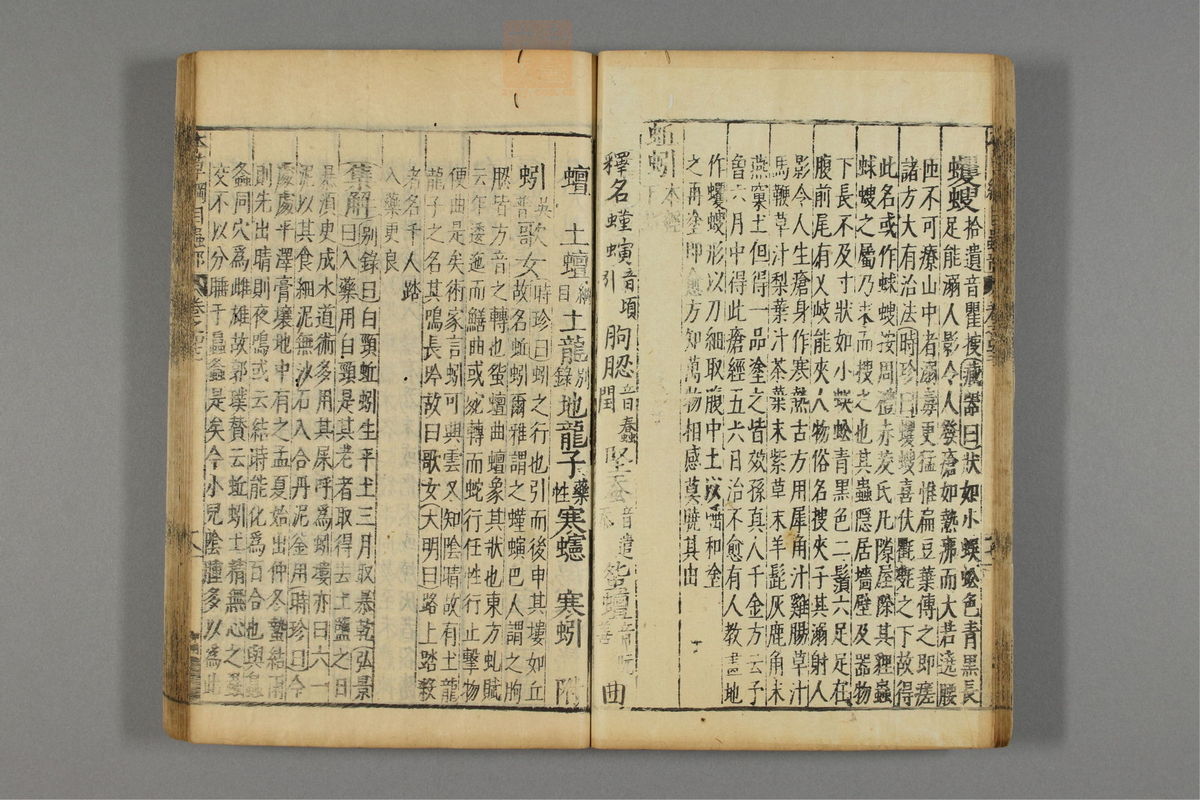 蠼螋拾遺音瞿搜藏器曰狀如小蜈蚣色青黑長
足能溺人影令人發瘡如熱疿而大若遶腰
匝不可療山中者溺毒更猛惟扁豆葉傅之即瘥
諸方大有治法時珍曰蠼螋喜伏氍毹之下故得
此名或作蛷螋按周禮赤犮氏凡隙屋除其貍蟲
蛷螋之屬乃求而搜之也其蟲隱居墻壁及器物
下長不及寸狀如小蜈蚣青黑色二鬚六足足在
腹前尾有叉岐能夾人物俗名搜夾子其溺射人
影令人生瘡身作寒熱古方用犀角汁雞腸草汁
馬鞭草汁梨葉汁茶葉末紫草末羊髭灰鹿角末
燕窠土但得一品塗之皆效孫真人千金方云予
曾六月中得此瘡經五六日治不愈有人教畫地
作蠼螋形以刀細取腹中土以唾和塗
之再塗即愈方知萬物相感莫曉其由
蚯蚓本經下品
釋名螼螾音頃引朐䏰音蠢閏堅蚕音遣忝𧉟蟺音阮善曲
蟺 土蟺綱目土龍別錄地龍子藥性寒䗾 寒蚓 附
蚓吳普歌女時珍曰蚓之行也引而後申其塿如丘
故名蚯蚓爾雅謂之螼螾巴人謂之朐
䏰皆方音之轉也𧉟蟺曲蟺象其狀也東方虬賦
云年逶迤而鱔曲或宛轉而蛇行任性行止擊物
便曲是矣術家言蚓可興雲又知陰晴故有土龍
龍子之名其鳴長吟故曰歌女大明曰路上踏殺
者名千人踏
入藥更良
集解別錄曰白頸蚯蚓生平土三月取暴乾弘景
曰入藥用白頸是其老者取得去土鹽之日
暴須臾成水道術多用其屎呼為蚓塿亦曰六一
泥以其食細泥無沙石入合丹泥釜用時珍曰今
處處平澤膏壤地中有之孟夏始出仲冬蟄結雨
則先出晴則夜鳴或云結時能化為百合也與𧒂
螽同穴為雌雄故郭璞贊云蚯蚓土精無心之蟲
交不以分婬于𧒂螽是矣今小兒陰腫多以為此